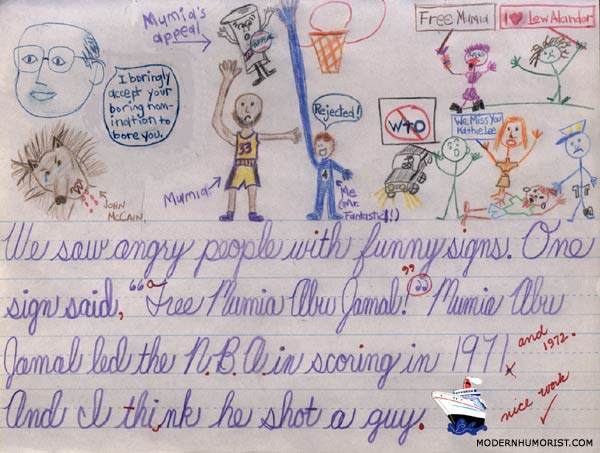 Mumia's appeal
Free Mumia
I ♥ Lew Alcindor
I boringly
accept your
boring nom-
ination to
bore you.
APPEAL
Rejected!
WTO
We Miss You!
Kathie Lee
33
4
Mumia
Me
(Mr.
Fantastic!!)
JOHN
McCAIN
We saw angry people with funny signs. One
sign said, "Free Mumia Abu Jamal!" Mumia Abu
Jamal led the N.B.A in scoring in 1971 and 1972.
And I think he shot a guy.
nice work
MODERNHUMORIST.COM